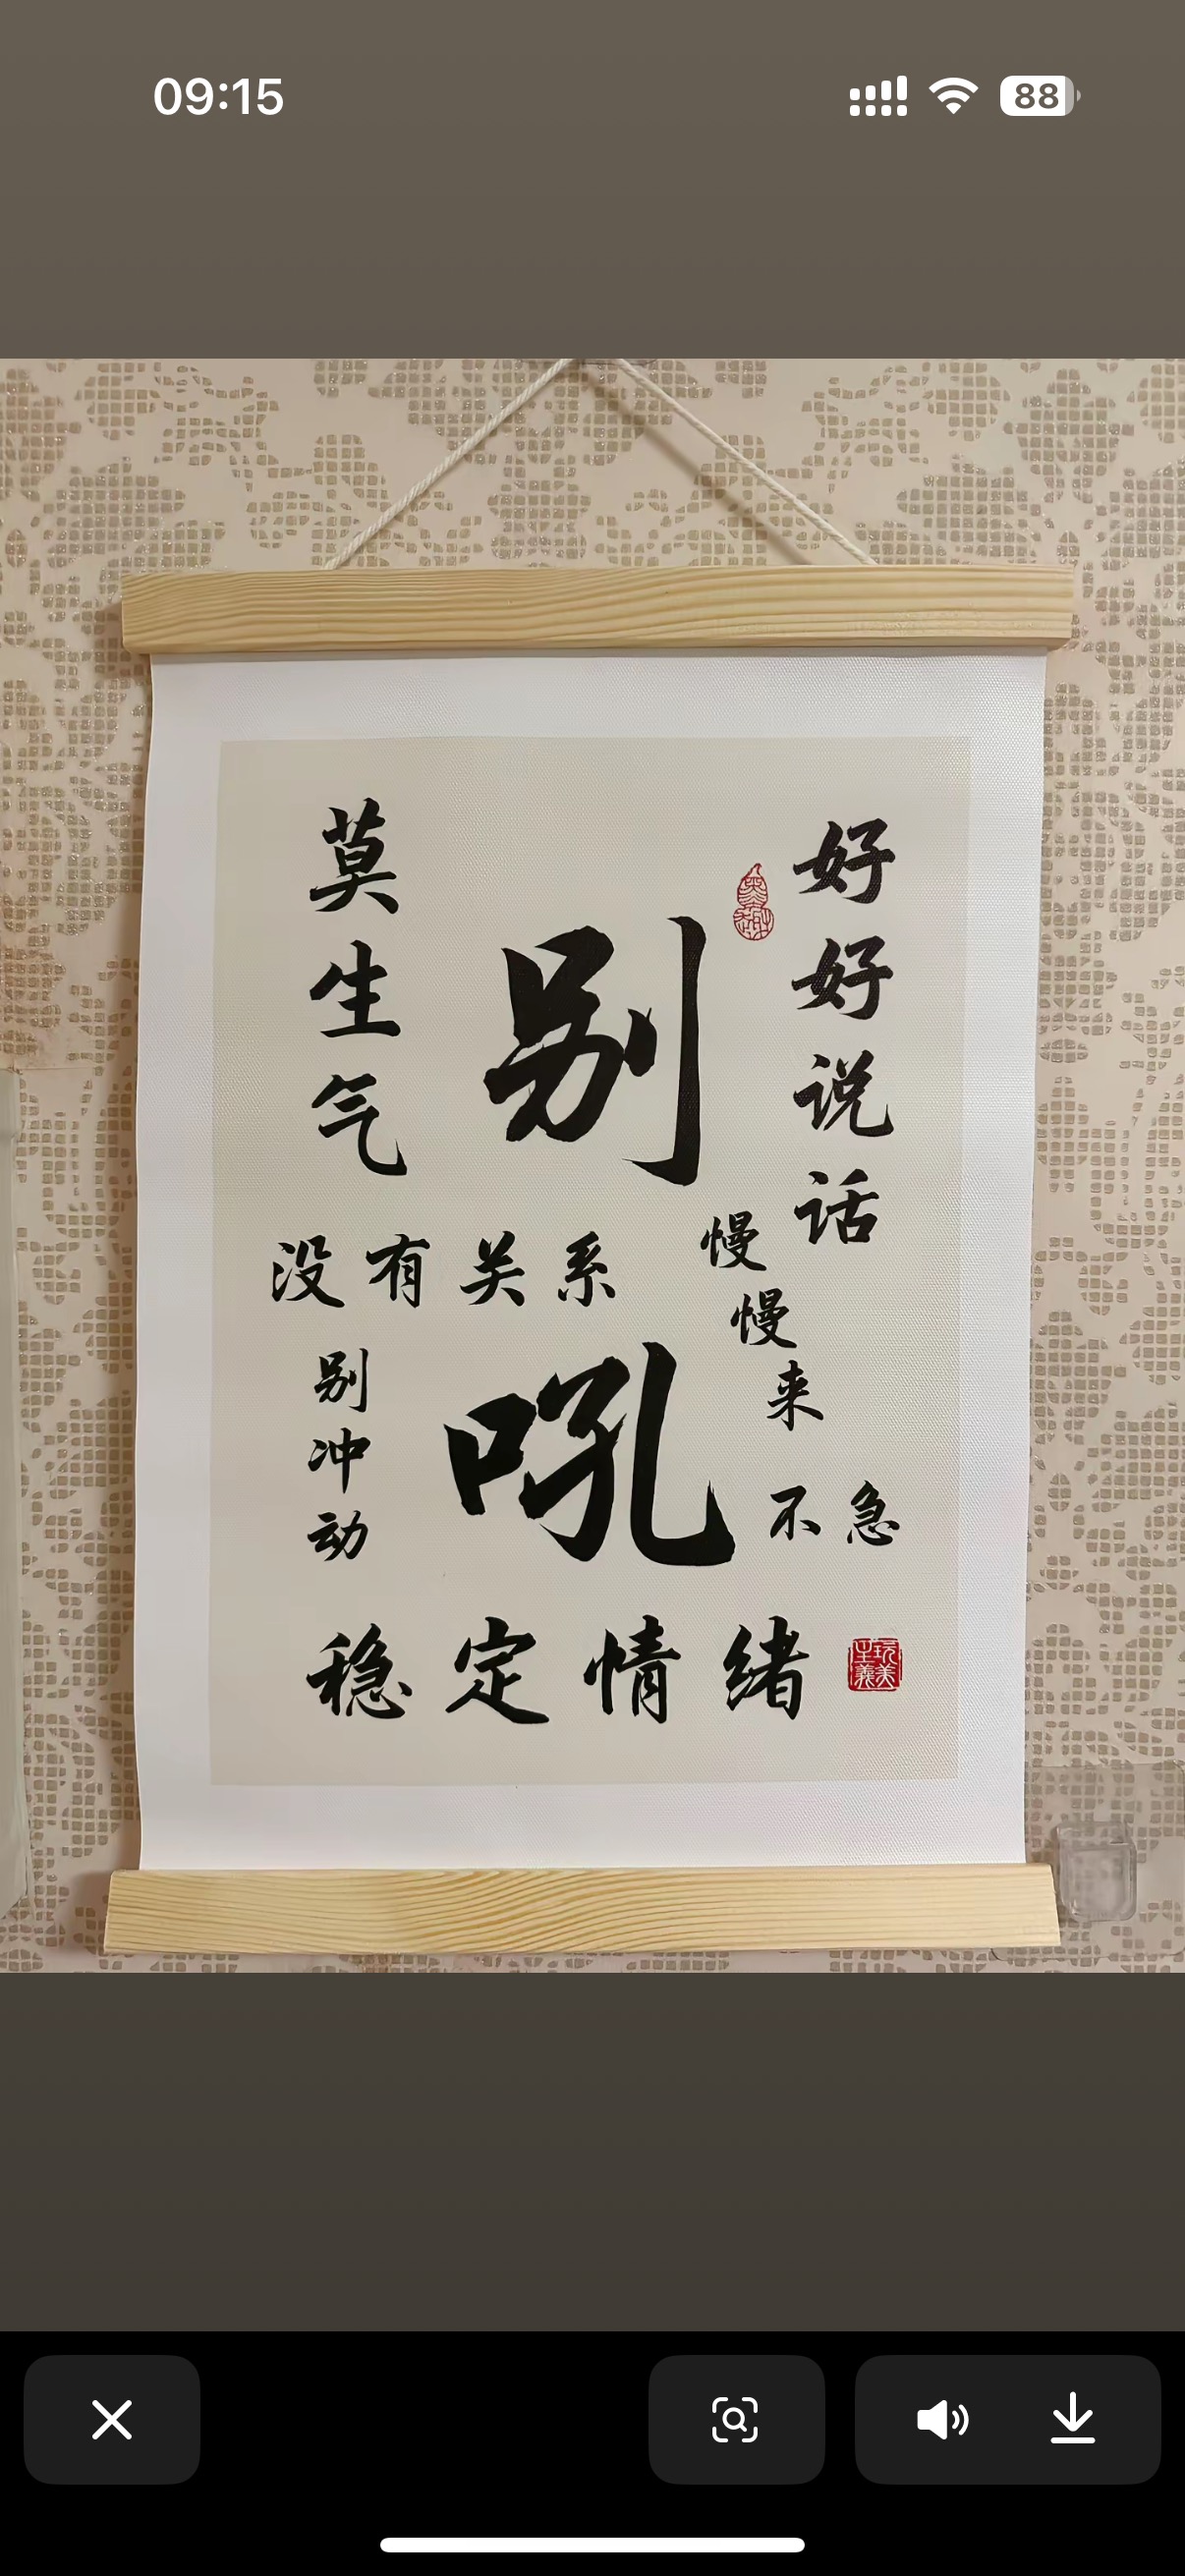 09:15
88
好好说话
别吼
莫生气
没有关系
慢慢来
不急
别冲动
稳定情绪
玩美
主義